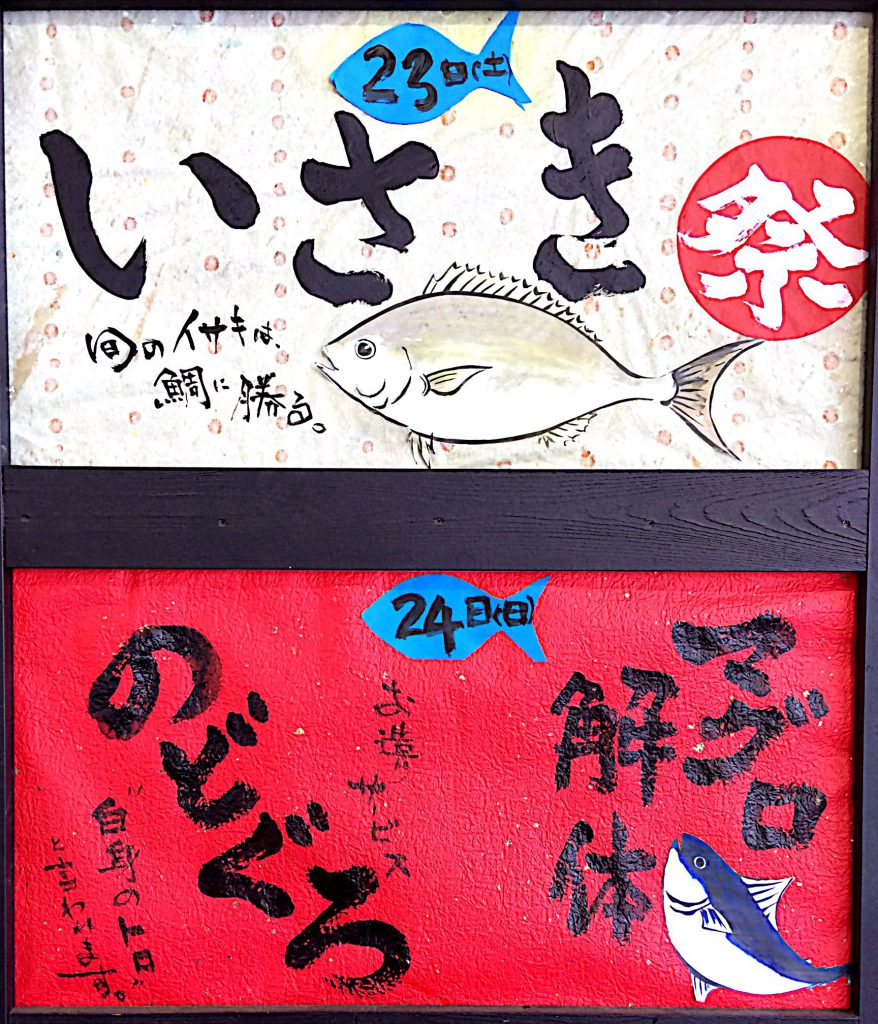 23日(土)
いさき
祭
旬のイサキは、
鯛に勝る。
24日(日)
マグロ
解体
お造りサービス
のどぐろ
"白身のトロ"
と言われます。